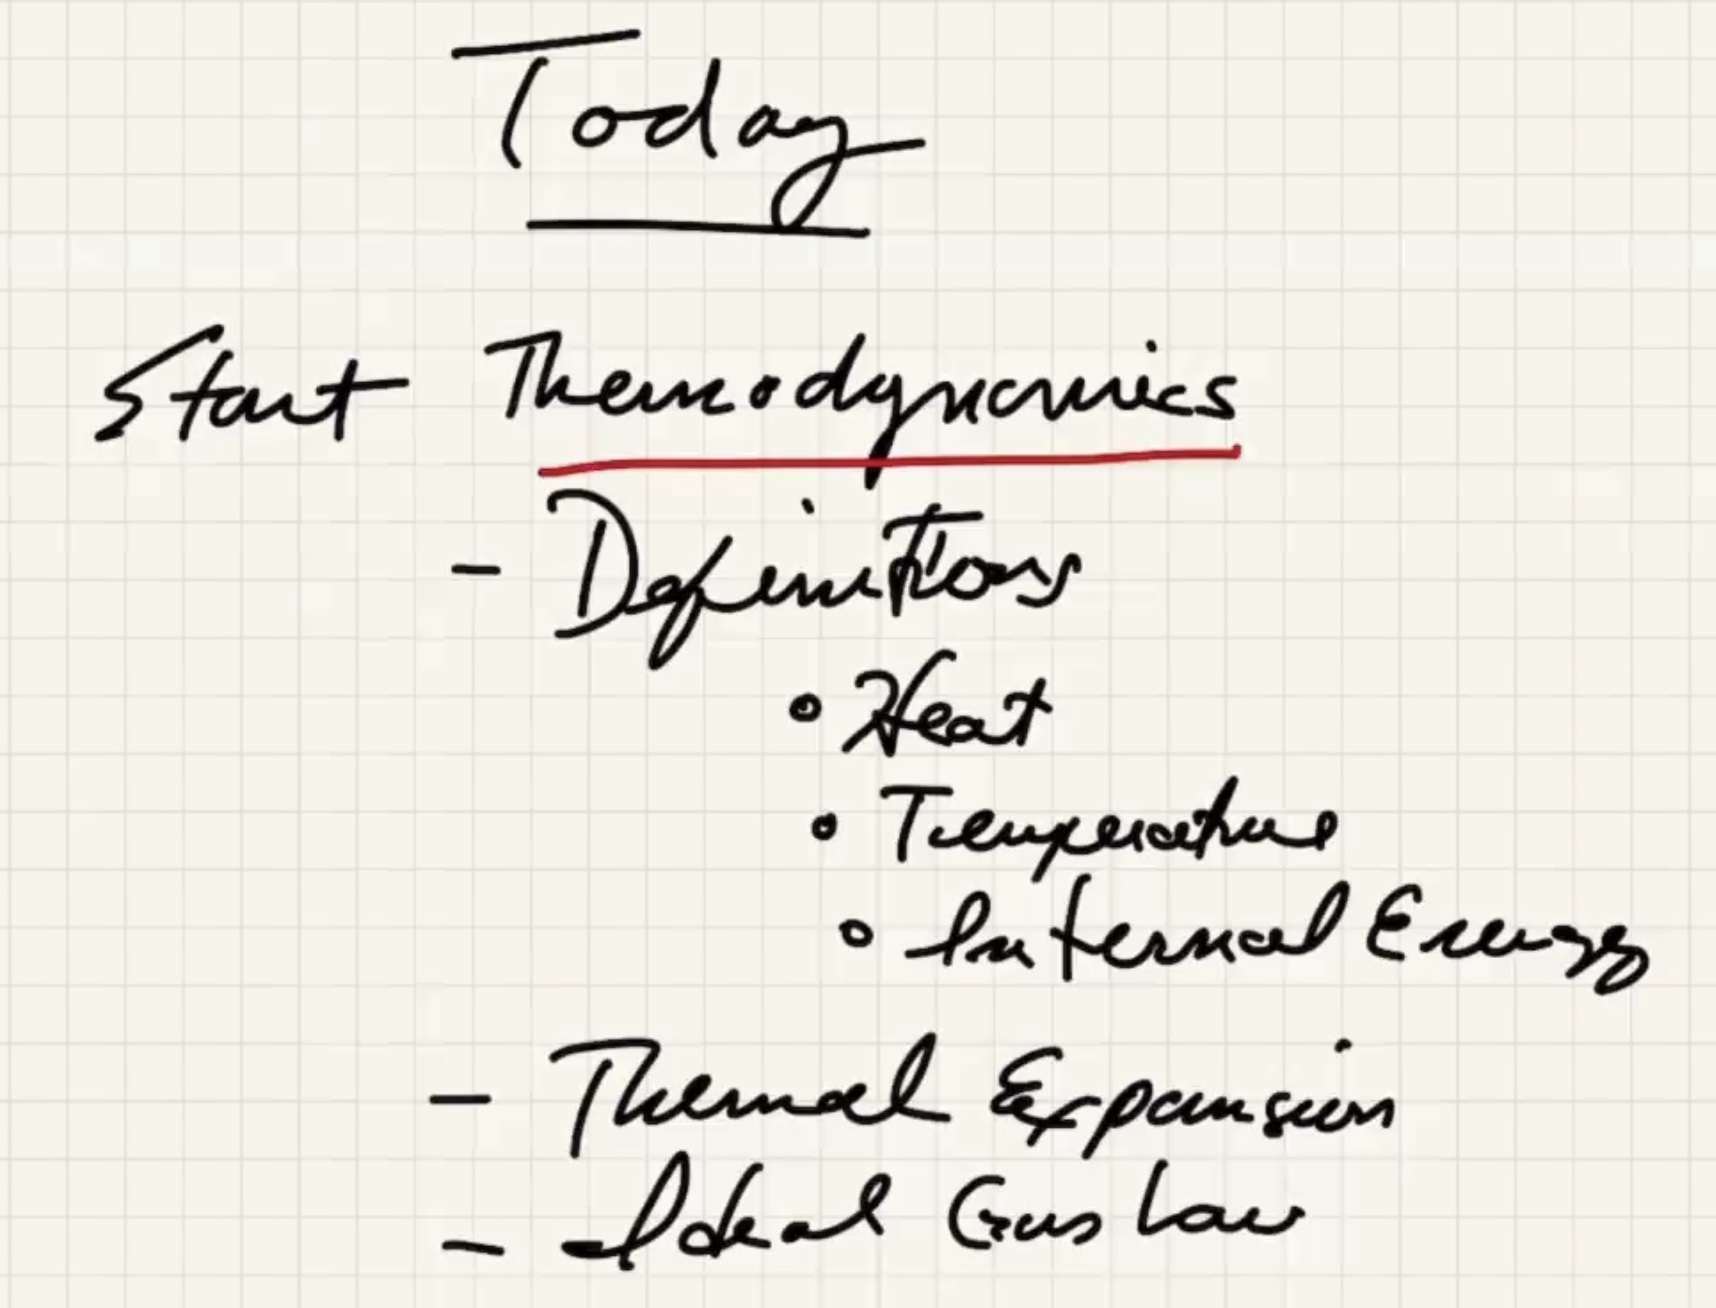 Today
Start Thermodynamics
- Definitions
• Heat
• Temperature
• Internal Energy
- Thermal Expansion
- Ideal Gas Law